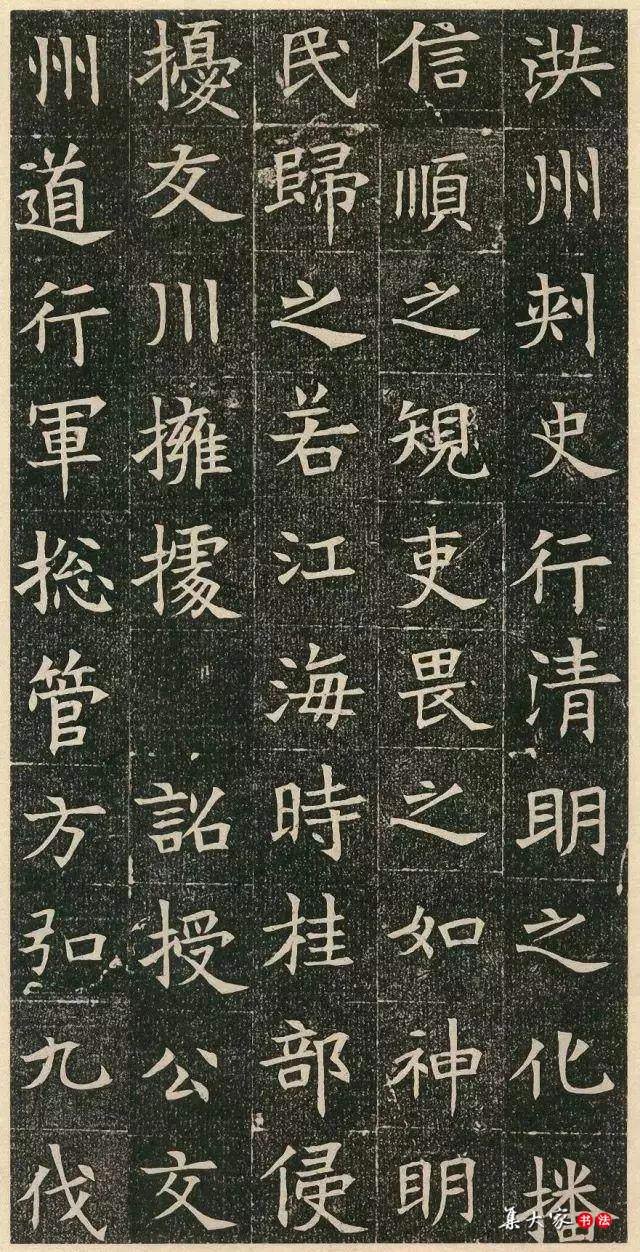 洪州刺史行清明之化播
信順之規吏畏之如神明
民歸之若江海時桂部侵
擾友川擁據詔授公交
州道行軍総管方弘九伐
集大家書法